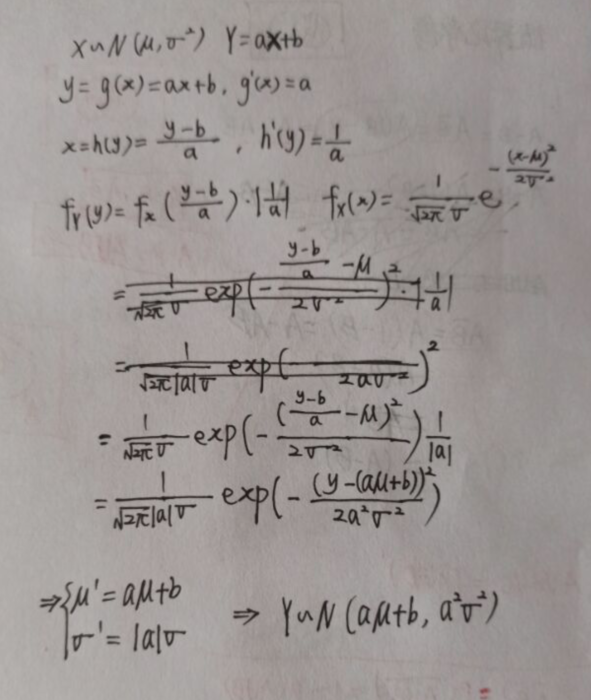 X~N(μ,σ²) Y=aX+b
y=g(x)=ax+b, g'(x)=a
x=h(y)=(y-b)/a, h'(y)=1/a
f_Y(y)=f_X((y-b)/a)·|1/a| f_X(x)=1/(√2π σ) e^(-(x-μ)²/(2σ²)),
=1/(√2π σ) exp(-((y-b)/a -μ)/(2σ²))²·|1/a|
=1/(√2π|a|σ) exp( /(2aσ²))²
=1/(√2π σ) exp(-((y-b)/a -μ)²/(2σ²)) 1/|a|
=1/(√2π|a|σ) exp(-(y-(aμ+b))²/(2a²σ²))
⇒{μ'=aμ+b
σ'=|a|σ ⇒ Y~N(aμ+b, a²σ²)